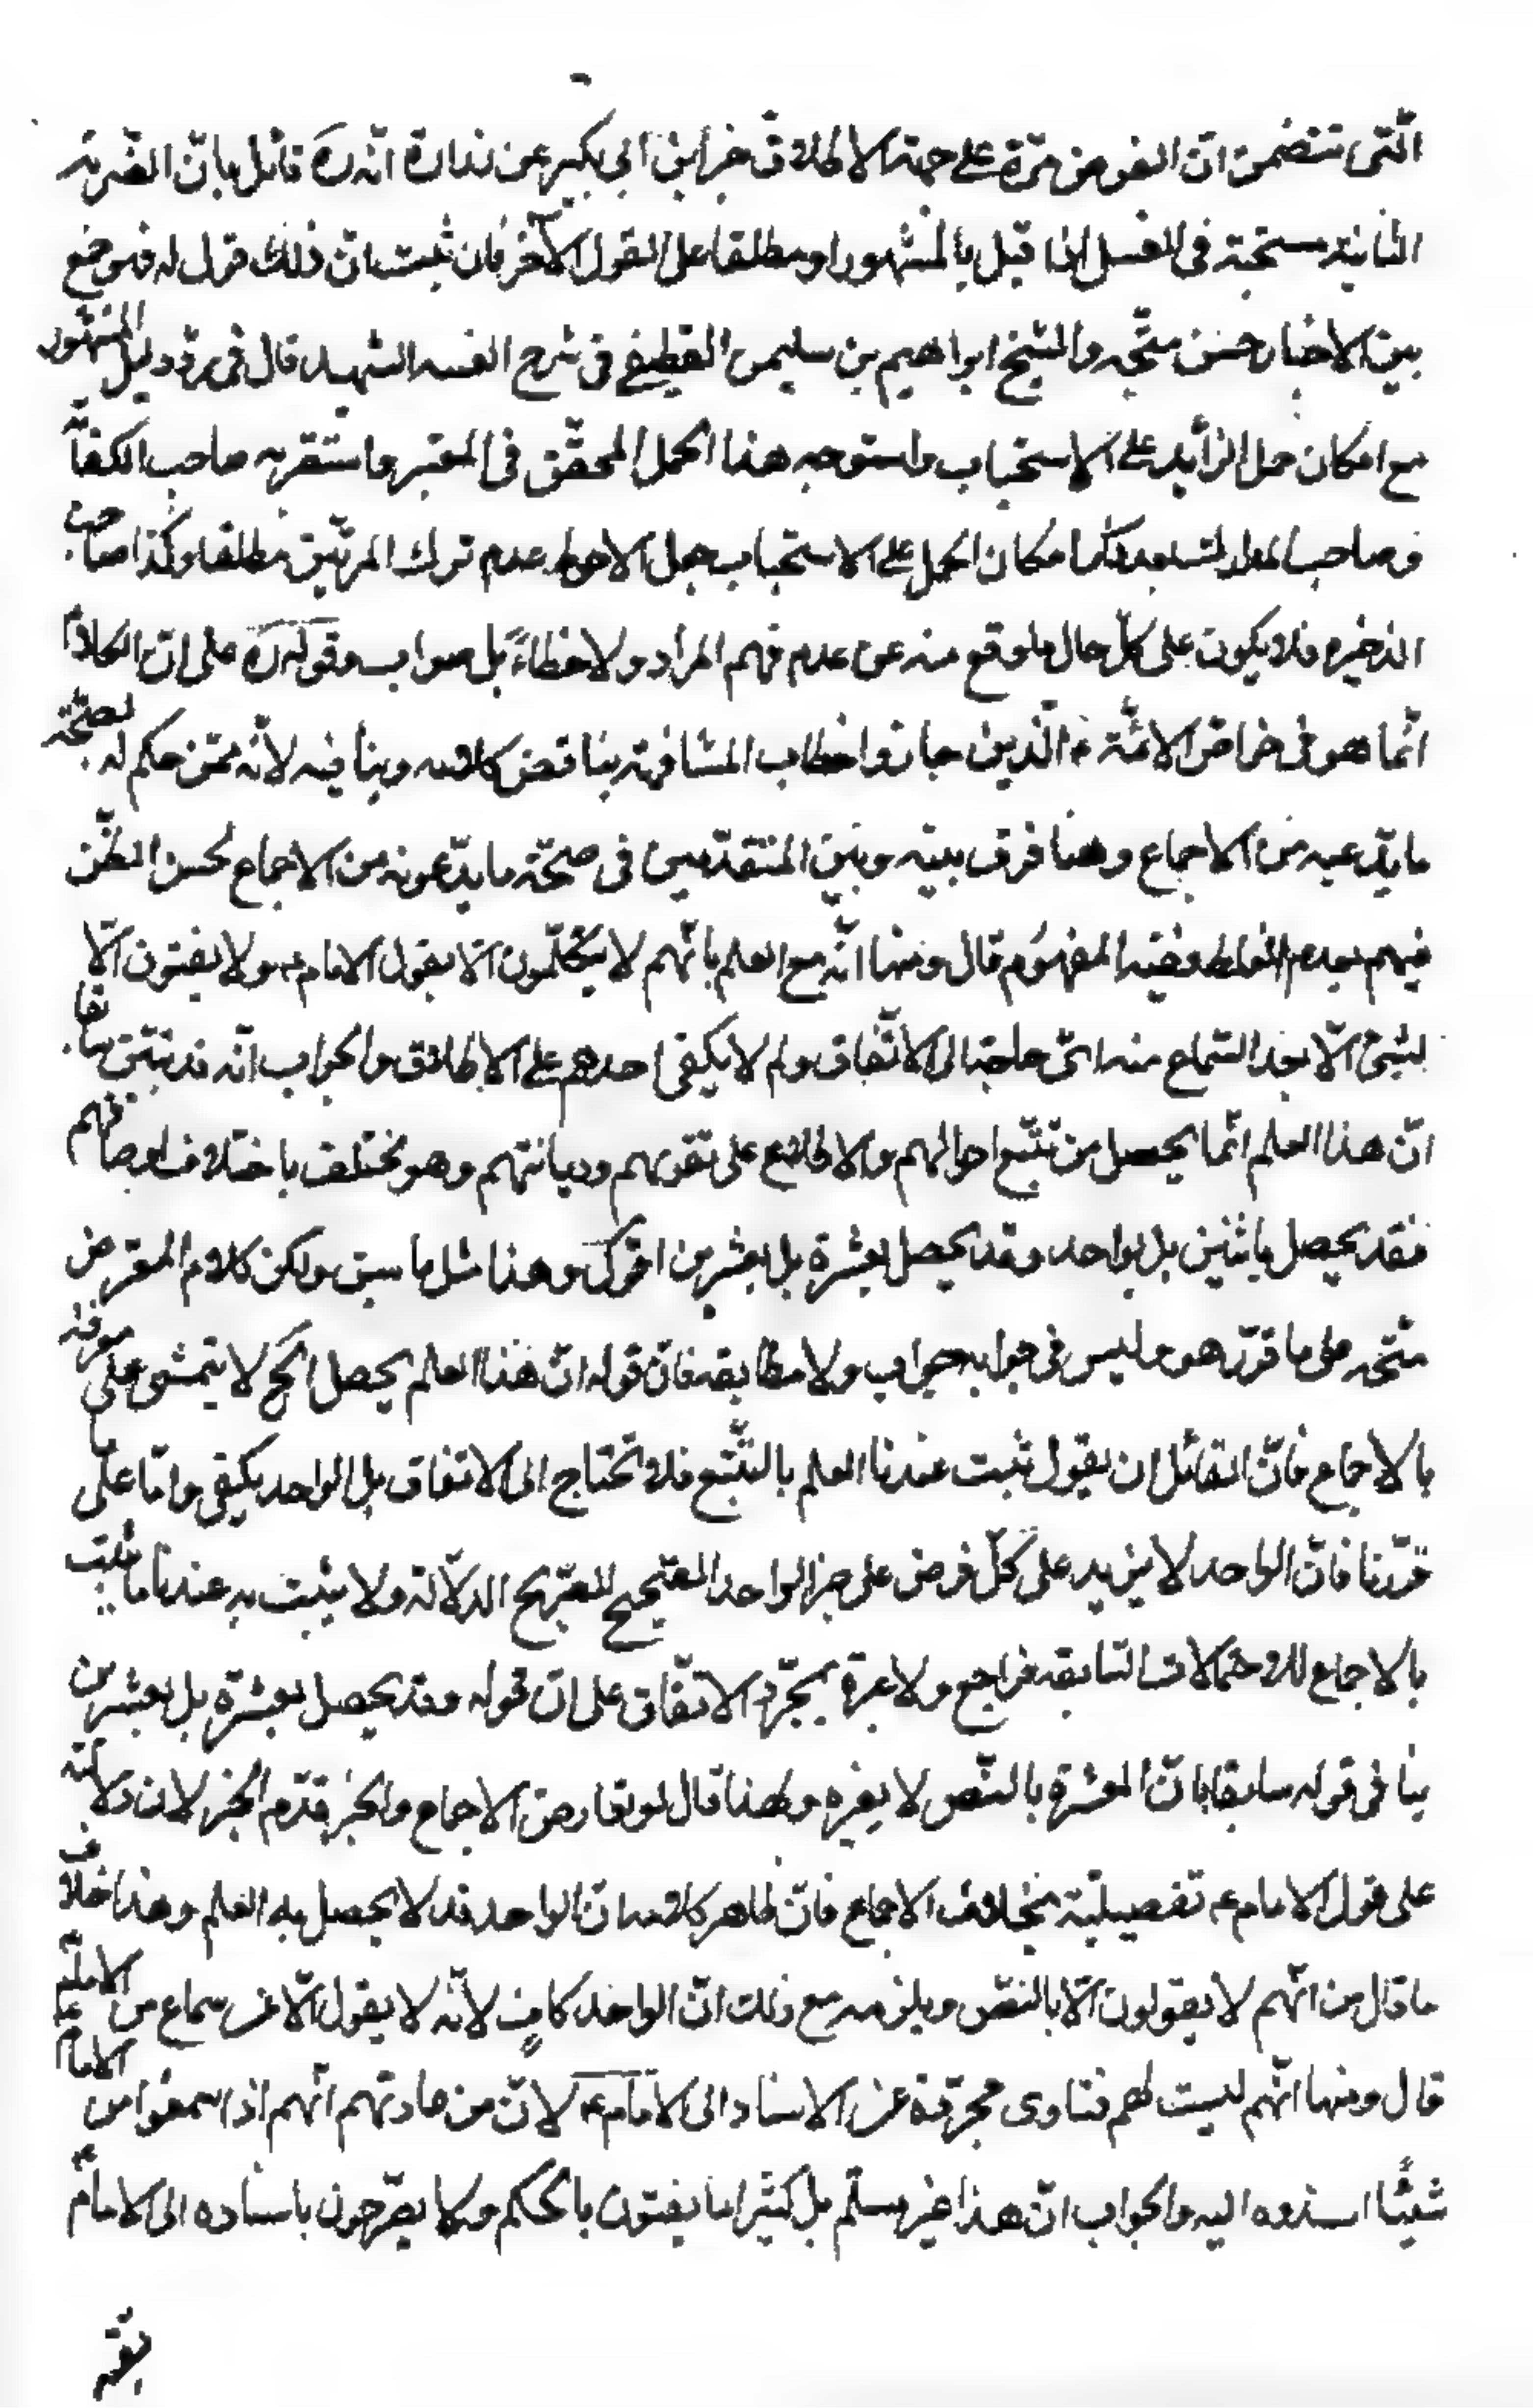 الّتى تتضمّن انّ الفرض مرّة على جهة الاطلاق خبر ابن ابى بكير عن زرارة انّه ره قائل بانّ الضّربة
الثانية مستحبّة فى الغسل اذا قيل بالمشهور او مطلقا على القول الآخر فان ثبت انّ ذلك قول له فهو جمع
بين الاخبار حسن متّجه والشيخ ابراهيم بن سليمن القطيفى فى شرح الفيه الشهيد قال فى ردّ دليل المشهور
مع امكان حمل الزّايد على الاستحباب واستوجه هذا الحمل المحقّق فى المعتبر واستقربه صاحب الكفاية
وصاحب المدارك بعد ذكر امكان الحمل على الاستحباب جعل الاحوط عدم ترك المرتين مطلقا وكذا صاحب
الذخيره فلا يكون على كلّ حال ما وقع منه عن عدم فهم المراد ولا خطاءً بل صواب وقوله ره على انّ الكلام
انّما هو فى خواصّ الائمّة ع الّذين حازوا خطاب المشافهة يناقض كلامه وينافيه لانّه ممّن حكم له بصحّة
ما يدّعيه من الاجماع وهنا فرق بينه وبين المتقدّمين فى صحّة ما يدّعونه من الاجماع لحسن الظّن
فيهم بعدم الغلط وفيه المفهوم قال ومنها انّه مع العلم بانّهم لا يتكلّمون الّا بقول الامام ع ولا يفتون الّا
بشئ الّا بعد السّماع منه اىّ حاجة الى الاتّفاق ولم لا يكفى احدهم على الاطلاق والجواب انّه قد تبيّن سابقا
انّ هذا العلم انّما يحصل من تتبّع احوالهم والاطّلاع على تقويهم وديانتهم وهو يختلف باختلاف اوصافهم
فقد يحصل باثنين بل بواحد وقد يحصل بعشرة بل بعشرين اقول وهذا مثل ما سبق ولكن كلام المعترض
متّجه على ما قرّر هو وليس فى جوابه جواب ولا مطابقه فانّ قوله انّ هذا العلم يحصل الخ لا يتمشى على معرفته
بالاجماع فانّ لقائل ان يقول ثبت عندنا العلم بالتّتبّع فلا تحتاج الى الاتفاق بل الواحد يكفى وامّا على ما
قرّرنا فانّ الواحد لا يزيد على كلّ فرض على خبر الواحد الصّحيح الصّريح الدّلالة ولا يثبت به عندنا ما يثبت
بالاجماع للاحتمالات السّابقه فراجع ولا عبرة بمجرّد الاتّفاق على انّ قوله وقد يحصل بعشرة بل بعشرين
ينافى قوله سابقا بانّ العشرة بالنّص لا يغيره ولهذا قال لو تعارض الاجماع والخبر قدّم الخبر لان دلالته
على قول الامام ع تفصيليّة بخلاف الاجماع فانّ ظاهر كلامه انّ الواحد قد لا يحصل به العلم وهذا خلاف
ما قال من انّهم لا يقولون الّا بالنصّ ويلزمه مع ذلك انّ الواحد كافٍ لانّه لا يقول الّا عن سماع من الامام ع
قال ومنها انّهم ليست لهم فتاوى مجرّدة عن الاسناد الى الامام ع لانّ من عادتهم انّهم اذا سمعوا من الامام
شيئًا اسندوه اليه والجواب انّ هذا غير مسلّم بل كثيرا ما يفتون بالحكم ولا يصرّحون باسناده الى الامام ع